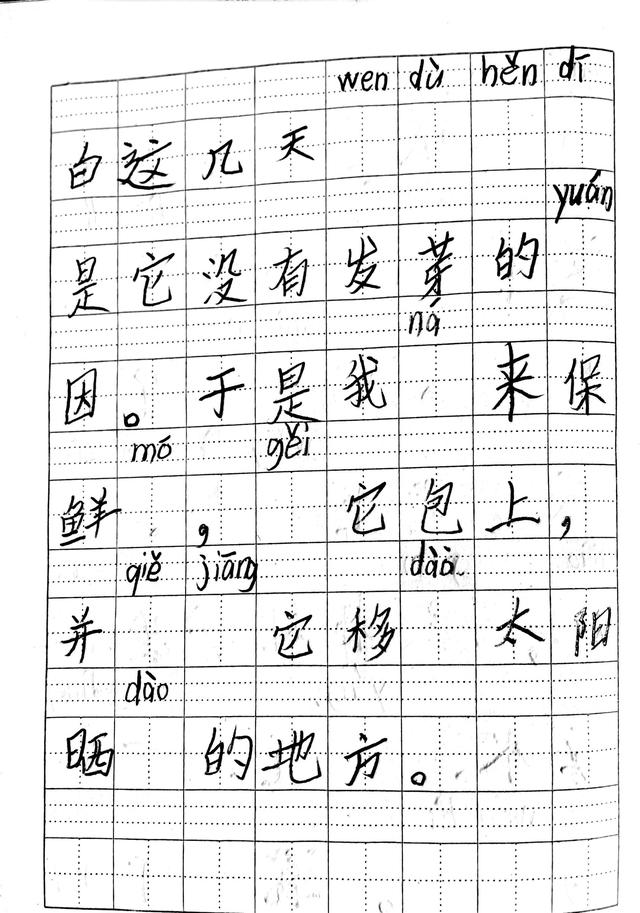 wen dù hěn dī
白这几天
yuán
是它没有发芽的
ná
因。于是我 来保
mó gěi
鲜 , 它包上,
qiě jiāng dào
并 它移 太阳
dào
晒 的地方。